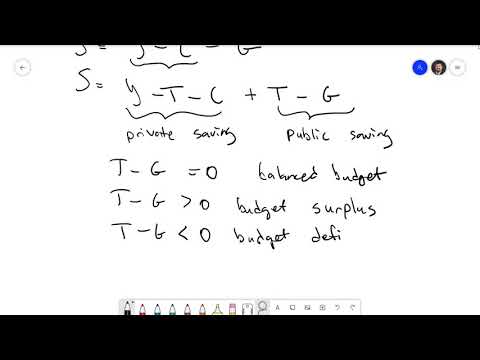 S = y - C - G
S = y - T - C + T - G
private saving public saving
T - G = 0 balanced budget
T - G > 0 budget surplus
T - G < 0 budget defi